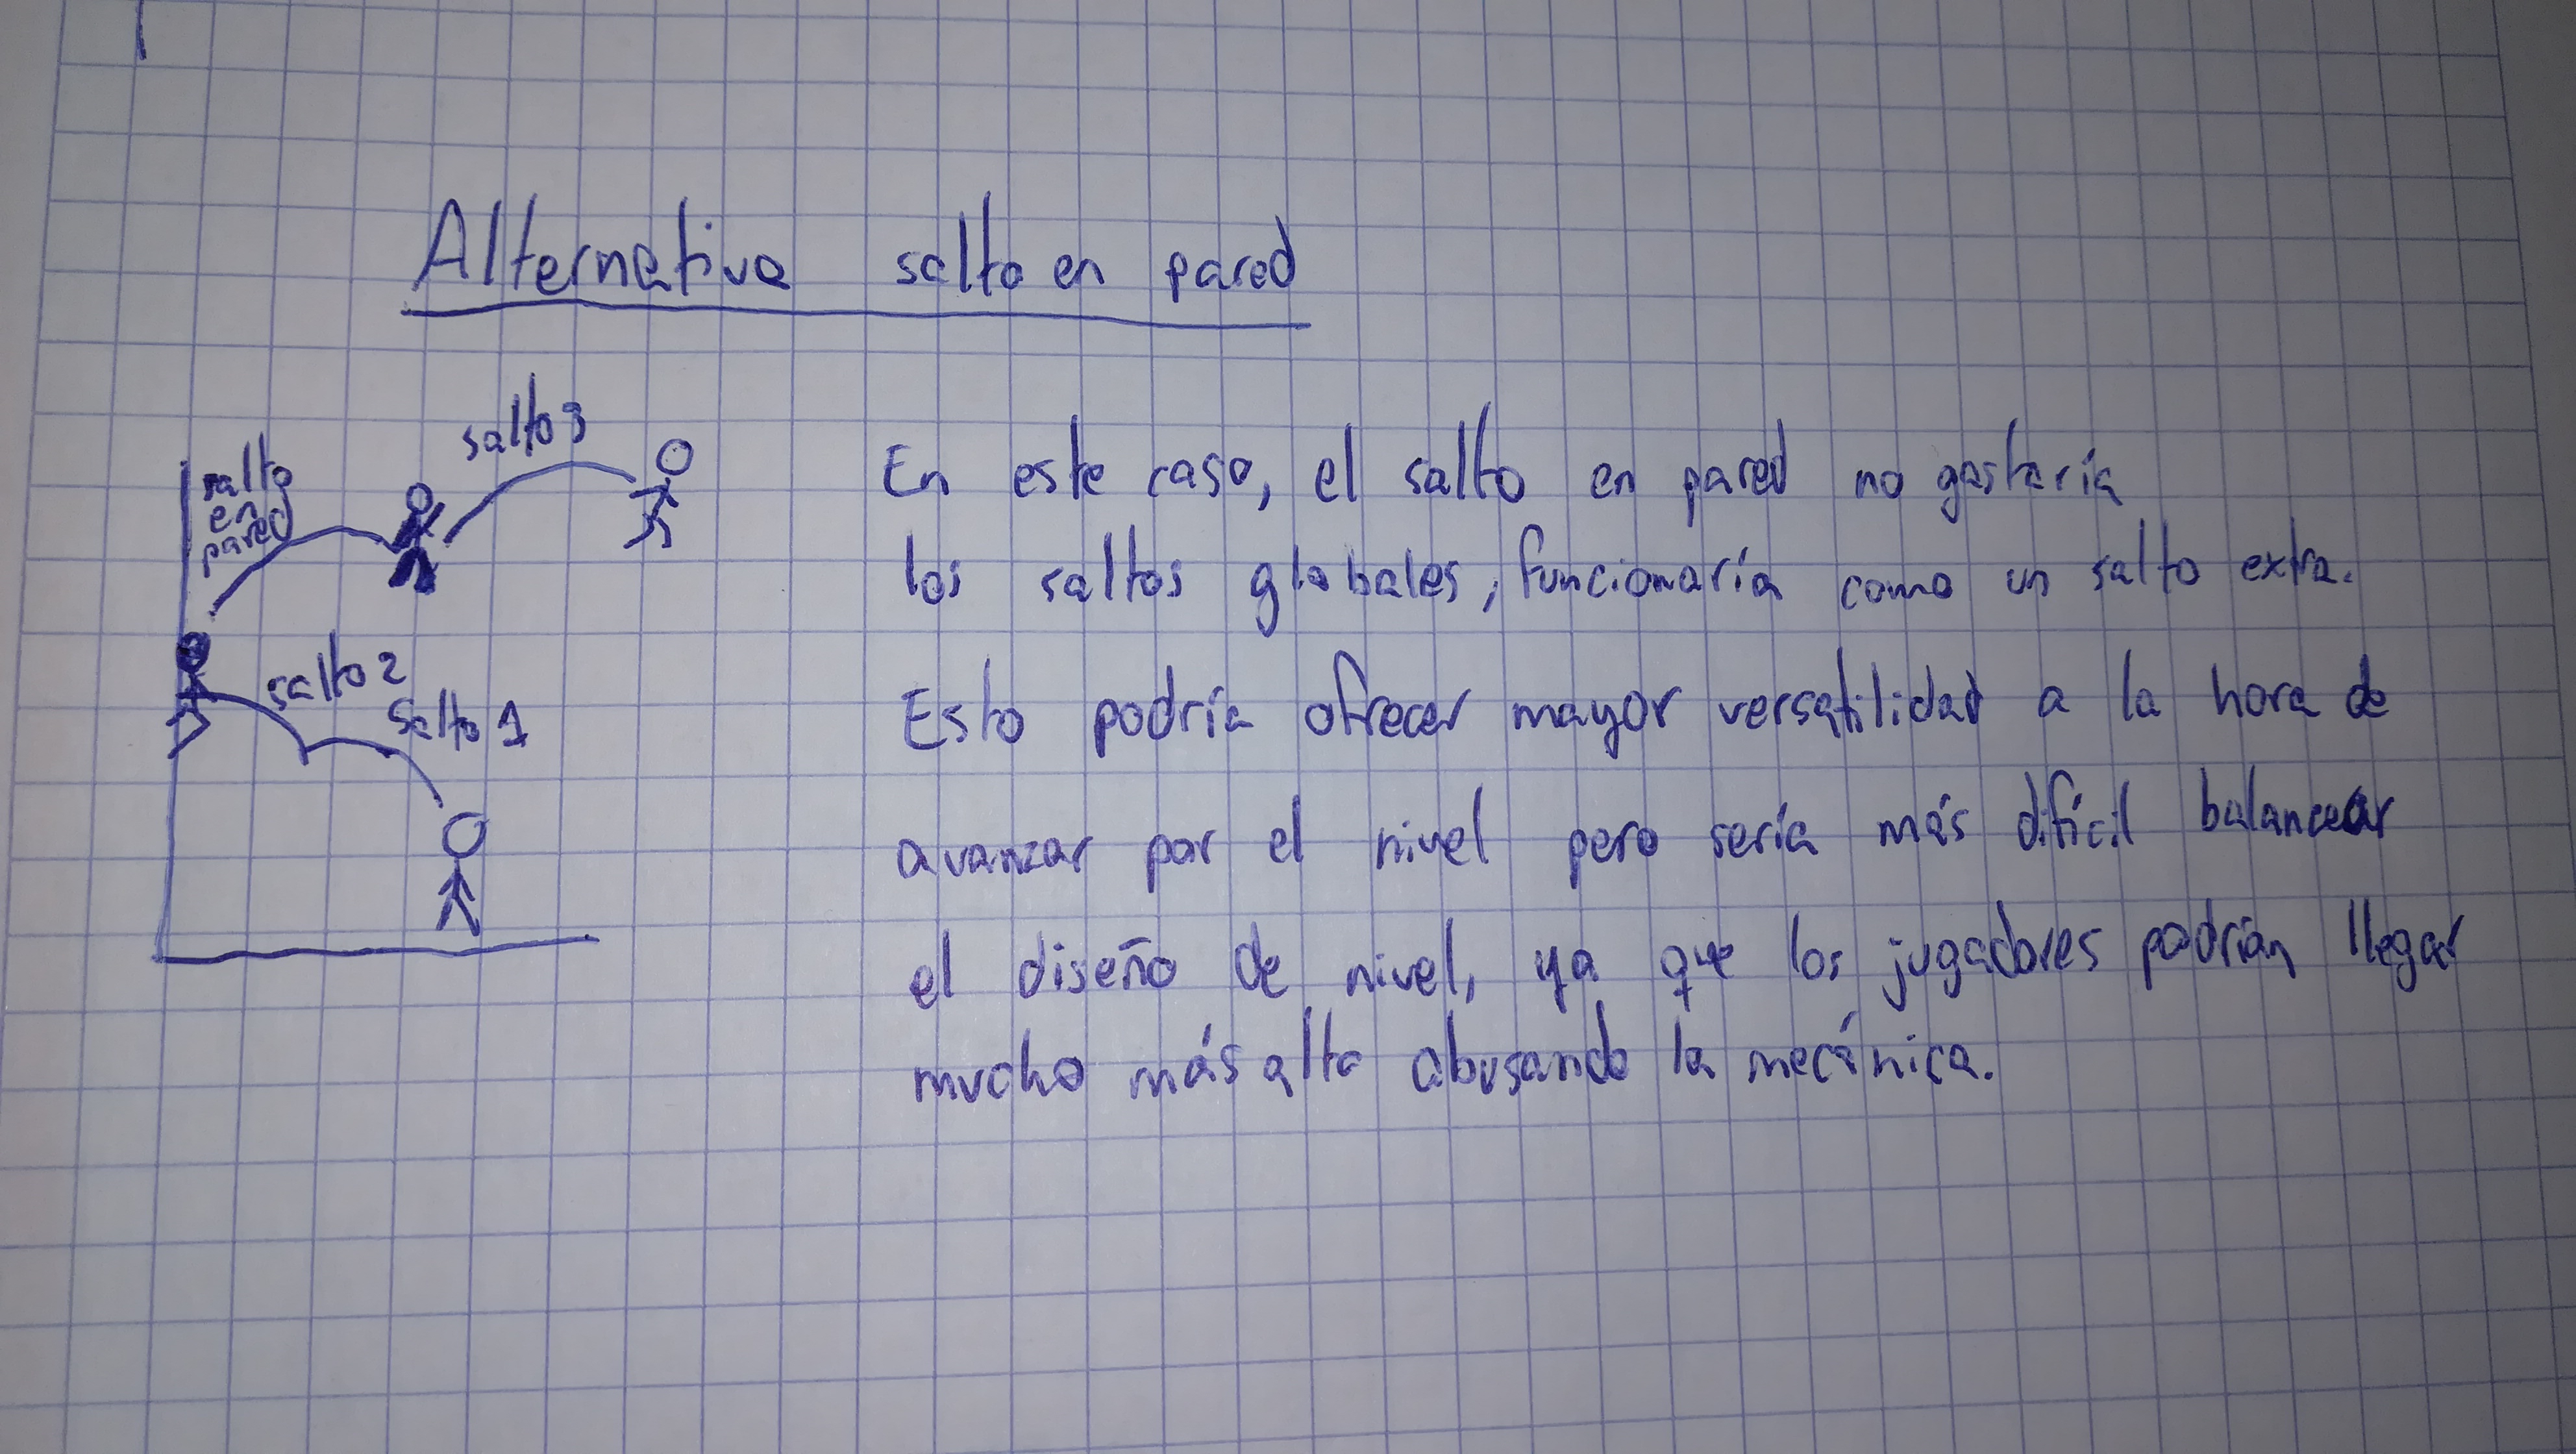 Alternativa salto en pared
salto 3
salto
en
pared
salto 2
salto 1
En este caso, el salto en pared no gastaría
los saltos globales, funcionaría como un salto extra.
Esto podría ofrecer mayor versatilidad a la hora de
avanzar por el nivel pero sería más difícil balancear
el diseño de nivel, ya que los jugadores podrían llegar
mucho más alto abusando la mecánica.